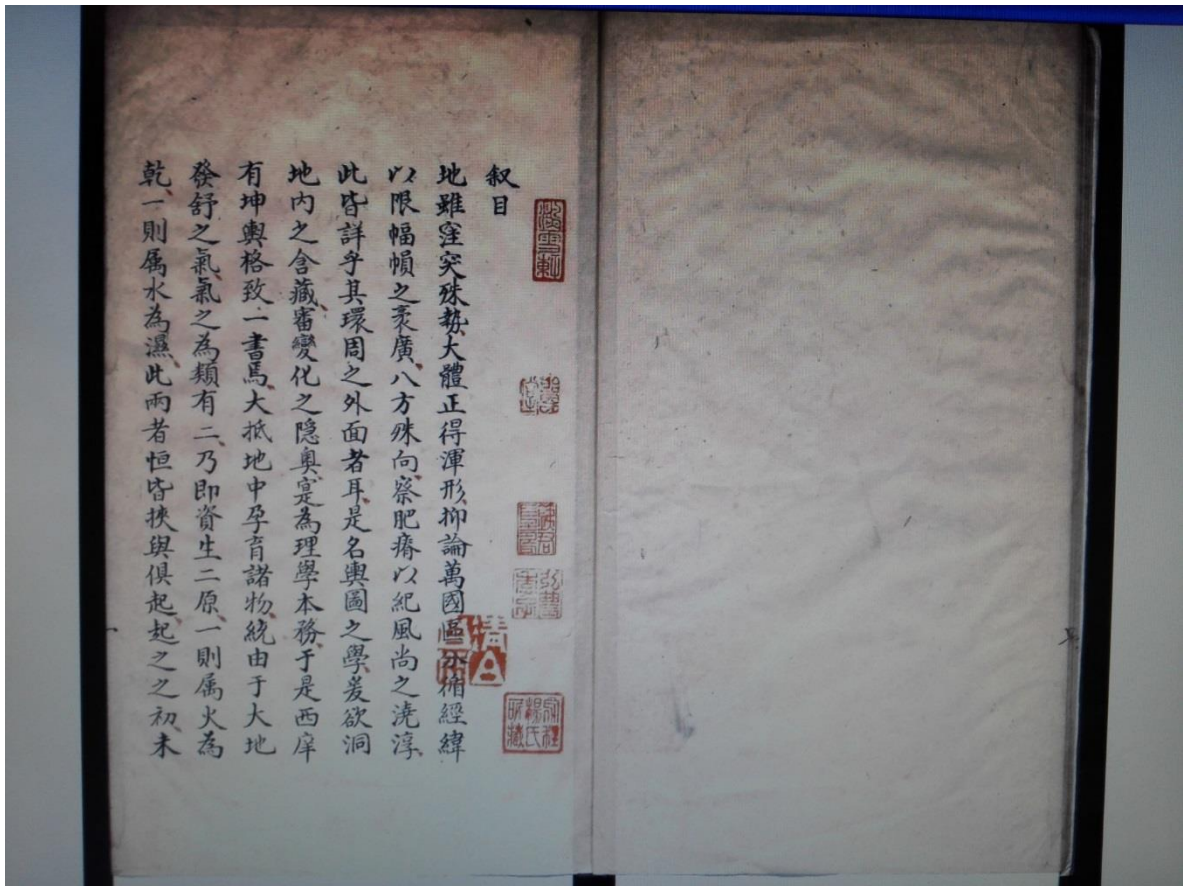 叙目
地雖窪突殊勢、大體正得渾形、抑論萬國區分循經緯
以限幅幀之袤廣、八方殊向、察肥瘠以紀風尚之澆淳、
此皆詳乎其環周之外面者耳、是名輿圖之學、爰欲洞
地內之含藏、審變化之隱奧、寔為理學本務、于是西庠
有坤輿格致一書焉、大抵地中孕育諸物、統由于大地
發舒之氣、氣之為類有二、乃即資生二原、一則属火為
乾、一則属水為濕、此兩者恒皆挾與俱起、起之之初、未